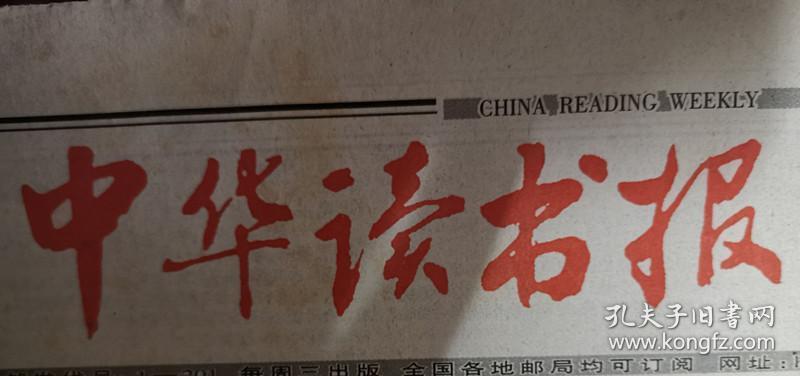 CHINA READING WEEKLY
中华读书报
每周三出版 全国各地邮局均可订阅 网址:
孔夫子旧書网
www.kongfz.com